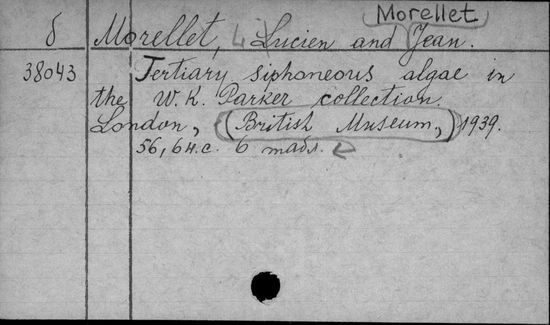 Morellet
δ Morellet, Lucien and Jean.
38043 Tertiary siphoneous algae in
the W. K. Parker collection.
London, (British Museum,) 1939.
56, 64.c. 6